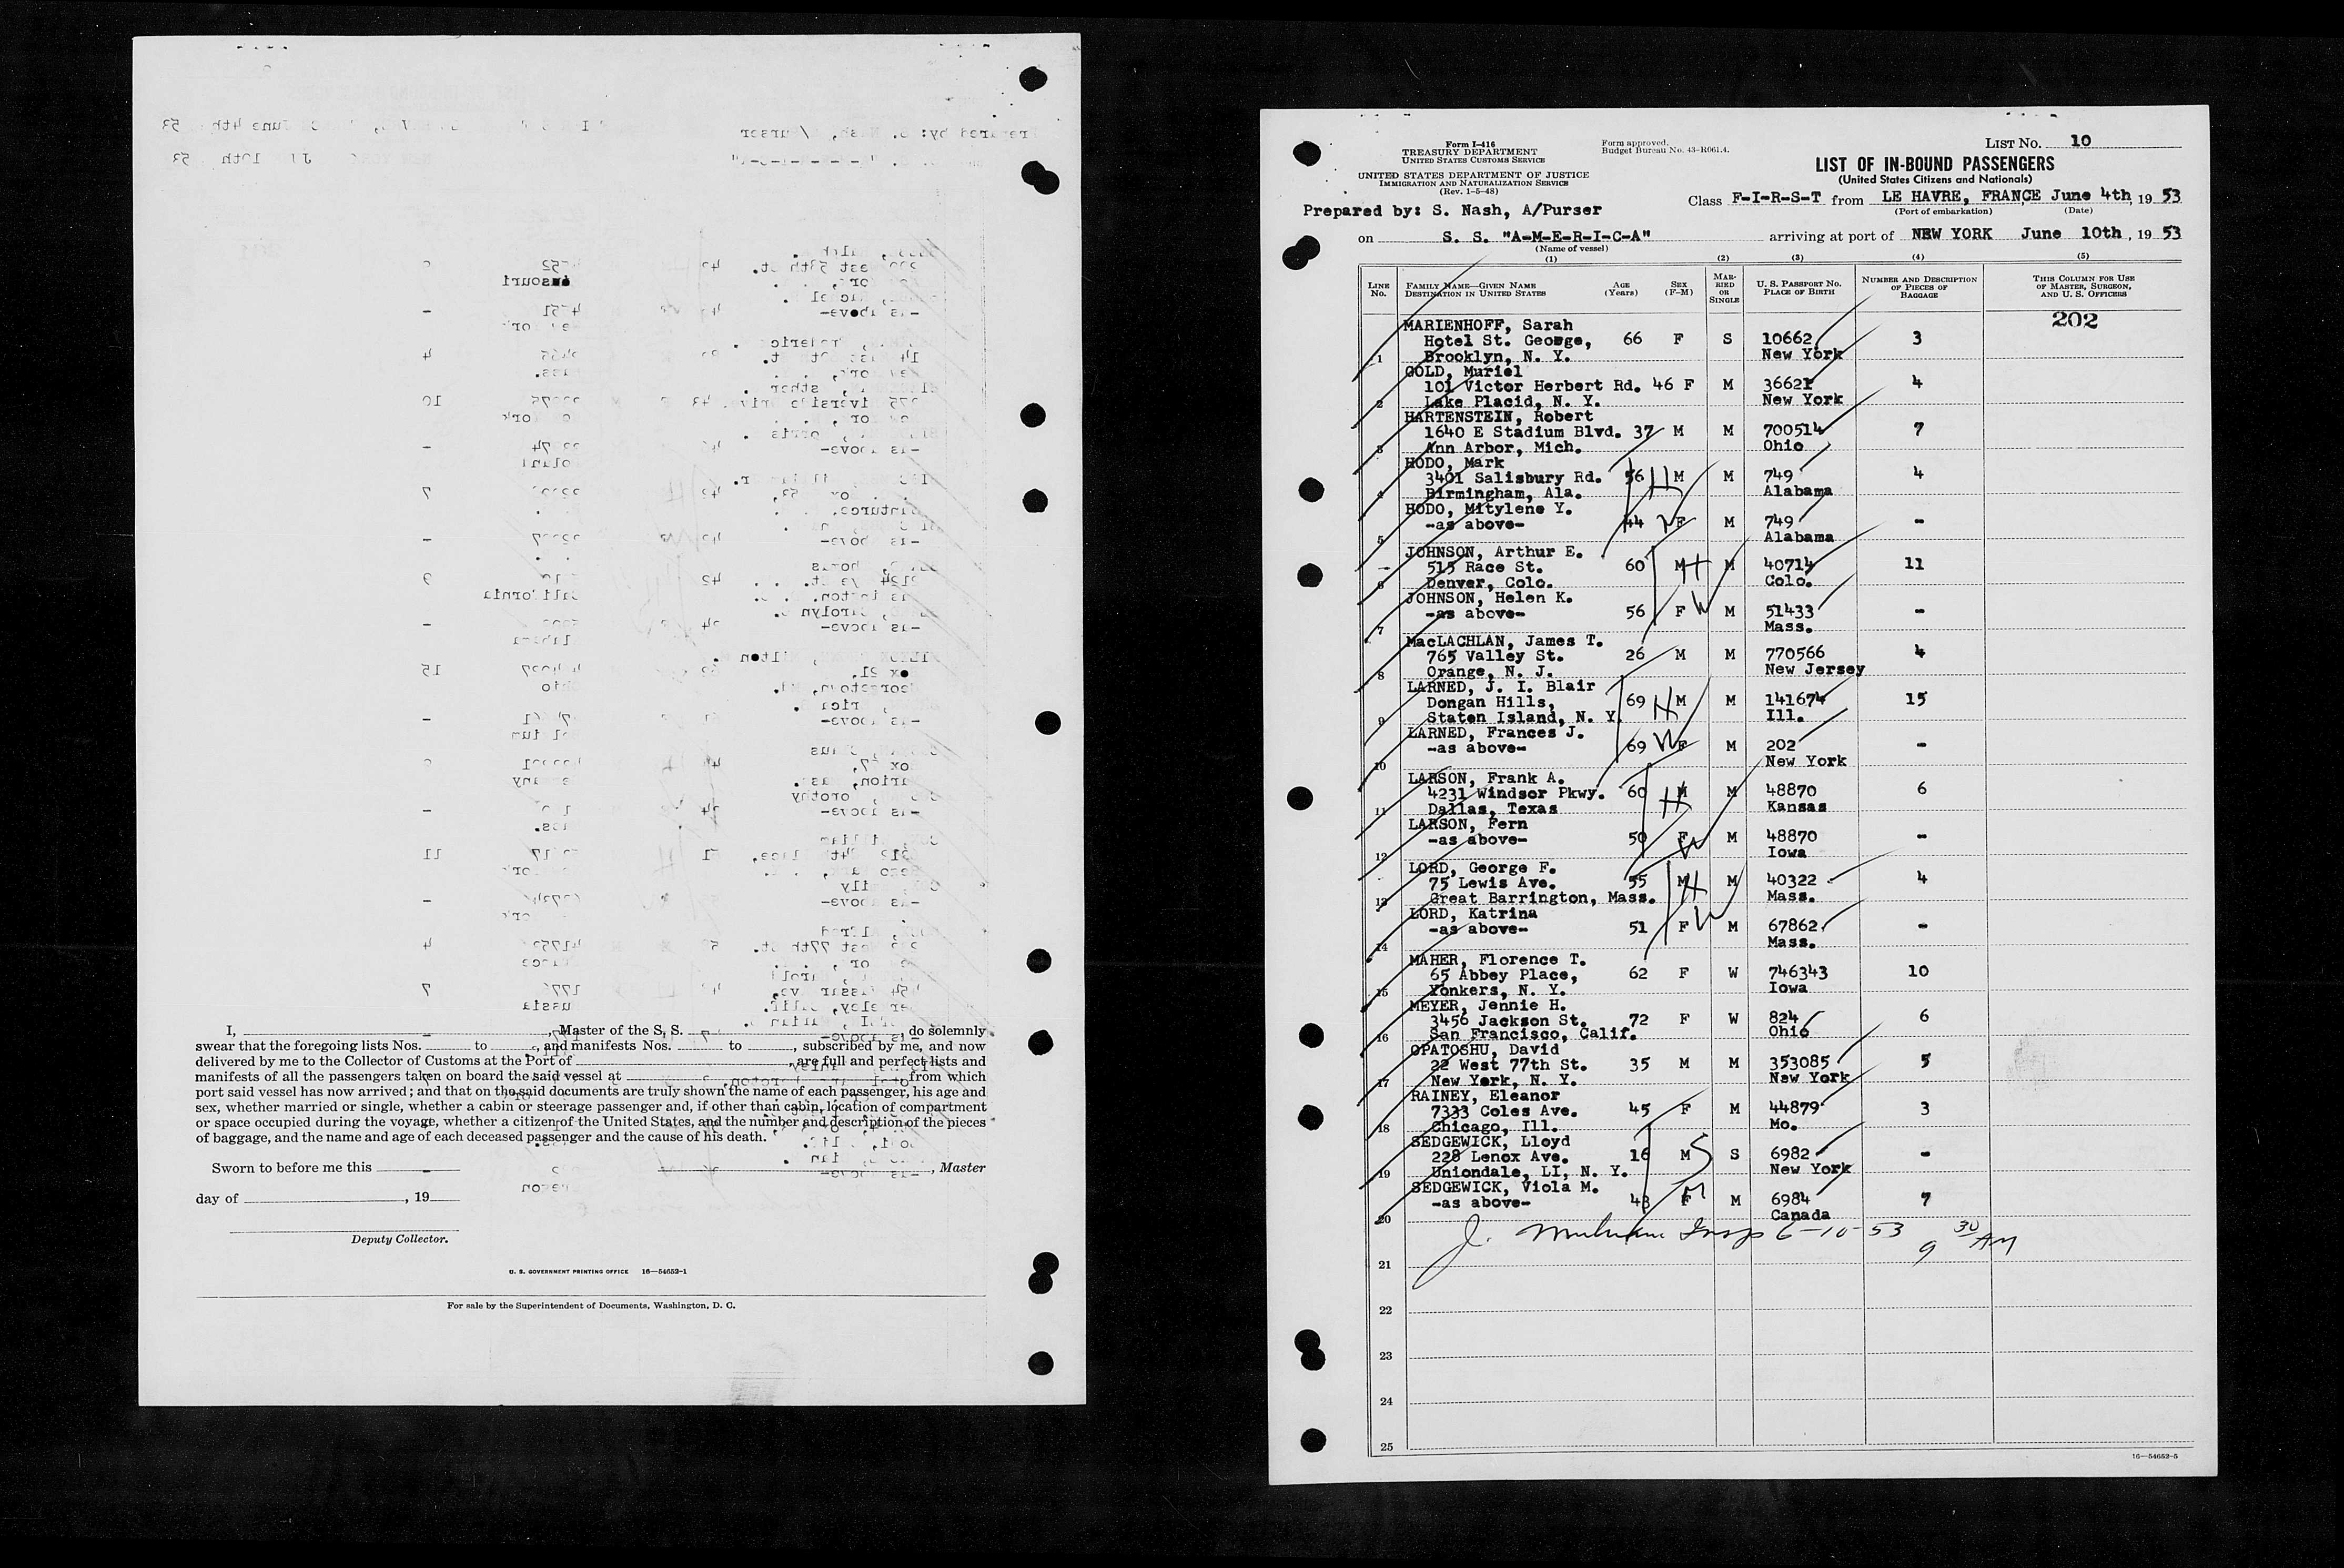 I, , Master of the S. S. , do solemnly
swear that the foregoing lists Nos. to , and manifests Nos. to , subscribed by me, and now
delivered by me to the Collector of Customs at the Port of , are full and perfect lists and
manifests of all the passengers taken on board the said vessel at from which
port said vessel has now arrived; and that on the said documents are truly shown the name of each passenger, his age and
sex, whether married or single, whether a cabin or steerage passenger and, if other than cabin, location of compartment
or space occupied during the voyage, whether a citizen of the United States, and the number and description of the pieces
of baggage, and the name and age of each deceased passenger and the cause of his death.
Sworn to before me this , Master
day of , 19
Deputy Collector.
U. S. GOVERNMENT PRINTING OFFICE 16—54652-1
For sale by the Superintendent of Documents, Washington, D. C.
Form I-416
TREASURY DEPARTMENT
UNITED STATES CUSTOMS SERVICE
UNITED STATES DEPARTMENT OF JUSTICE
IMMIGRATION AND NATURALIZATION SERVICE
(Rev. 1-5-48)
Form approved.
Budget Bureau No. 43-R061.4.
LIST NO. 10
LIST OF IN-BOUND PASSENGERS
(United States Citizens and Nationals)
Prepared by: S. Nash, A/Purser
Class F-I-R-S-T from LE HAVRE, FRANCE June 4th, 19 53
(Port of embarkation) (Date)
on S. S. "A-M-E-R-I-C-A" arriving at port of NEW YORK June 10th, 19 53
(Name of vessel)
(1) (2) (3) (4) (5)
LINE NO. FAMILY NAME—GIVEN NAME DESTINATION IN UNITED STATES AGE (Years) SEX (F-M) MARRIED OR SINGLE U. S. PASSPORT NO. PLACE OF BIRTH NUMBER AND DESCRIPTION OF PIECES OF BAGGAGE THIS COLUMN FOR USE OF MASTER, SURGEON, AND U. S. OFFICERS
202
MARIENHOFF, Sarah
Hotel St. George, 66 F S 10662 3
1 Brooklyn, N. Y. New York
GOLD, Muriel
101 Victor Herbert Rd. 46 F M 36621 4
2 Lake Placid, N. Y. New York
HARTENSTEIN, Robert
1640 E Stadium Blvd. 37 M M 700514 7
3 Ann Arbor, Mich. Ohio
HODO, Mark
3401 Salisbury Rd. 56 H M M 749 4
4 Birmingham, Ala. Alabama
HODO, Mitylene Y.
-as above- 44 W F M 749 -
5 Alabama
JOHNSON, Arthur E.
515 Race St. 60 M H M 40714 11
6 Denver, Colo. Colo.
JOHNSON, Helen K.
-as above- 56 F W M 51433 -
7 Mass.
MacLACHLAN, James T.
765 Valley St. 26 M M 770566 4
8 Orange, N. J. New Jersey
LARNED, J. I. Blair
Dongan Hills, 69 H M M 141674 15
9 Staten Island, N. Y. Ill.
LARNED, Frances J.
-as above- 69 W F M 202 -
10 New York
LARSON, Frank A.
4231 Windsor Pkwy. 60 H M M 48870 6
11 Dallas, Texas Kansas
LARSON, Fern
-as above- 50 F W M 48870 -
12 Iowa
LORD, George F.
75 Lewis Ave. 55 M H M 40322 4
13 Great Barrington, Mass. Mass.
LORD, Katrina
-as above- 51 F W M 67862 -
14 Mass.
MAHER, Florence T.
65 Abbey Place, 62 F W 746343 10
15 Yonkers, N. Y. Iowa
MEYER, Jennie H.
3456 Jackson St. 72 F W 824 6
16 San Francisco, Calif. Ohio
OPATOSHU, David
22 West 77th St. 35 M M 353085 5
17 New York, N. Y. New York
RAINEY, Eleanor
7333 Coles Ave. 45 F M 44879 3
18 Chicago, Ill. Mo.
SEDGEWICK, Lloyd
228 Lenox Ave. 16 M S S 6982 -
19 Uniondale, LI, N. Y. New York
SEDGEWICK, Viola M.
-as above- 43 F M M 6984 7
20 Canada
J. Insp 6-10-53 9 30 AM
21
22
23
24
25
16—54652-5